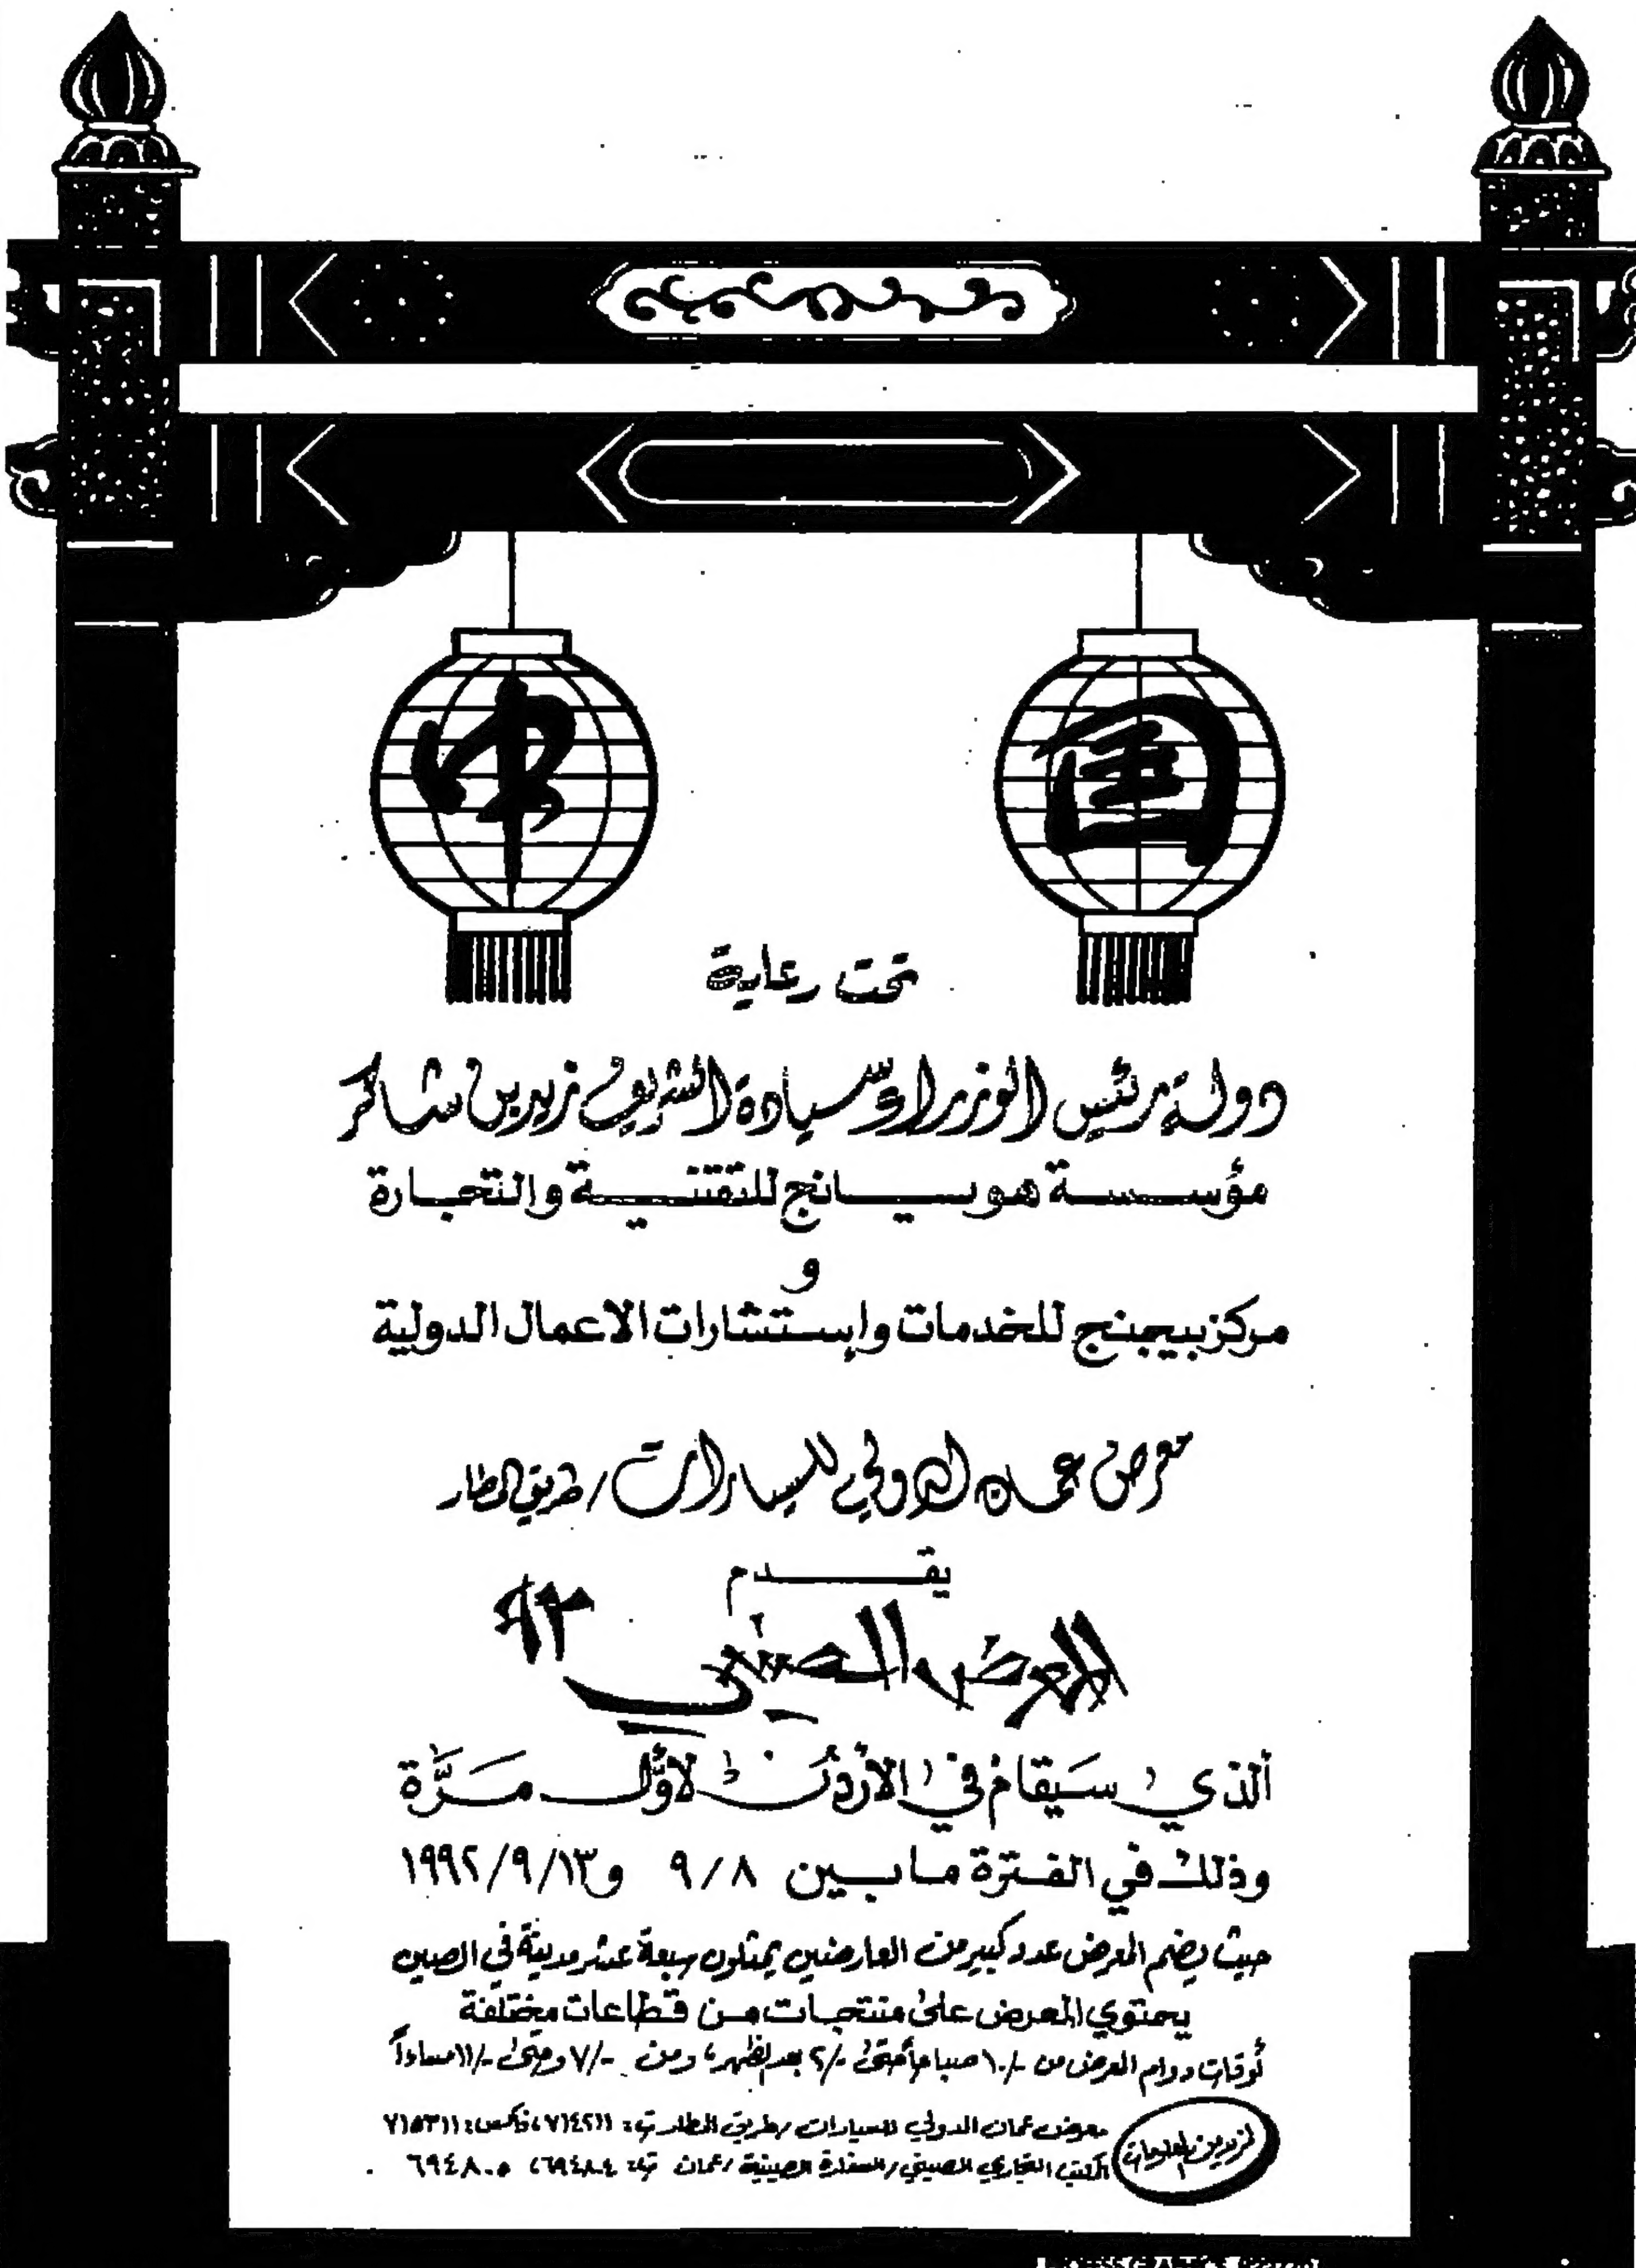 中 国
تحت رعاية
دولة رئيس الوزراء سيادة الشريف زيد بن شاكر
مؤسسة هوسيانج للتقنية والتجارة
و
مركز بيجينج للخدمات وإستشارات الاعمال الدولية
معرض عمان الدولي للسيارات / طريق المطار
يقدم
المعرض الصيني ٩٢
ألذي سَيقامُ في الأردُن لأوَّل مَرَّة
وذلك في الفترة ما بين ٩/٨ و١٩٩٢/٩/١٣
حيث يضم المعرض عدد كبير من العارضين يمثلون سبعة عشر مدينة في الصين
يحتوي المعرض على منتجات من قطاعات مختلفة
أوقات دوام المعرض من -/١٠ صباحاً حتى -/٢ بعد الظهر، ومن -/٧ وحتى -/١١ مساءاً
لمزيد من المعلومات
معرض عمان الدولي للسيارات / طريق المطار ت: ٧١٤٢١١، فاكس: ٧١٥٣١١
المكتب التجاري الصيني / السفارة الصينية / عمان ت: ٦٩٤٨٠٤، ٦٩٤٨٠٥